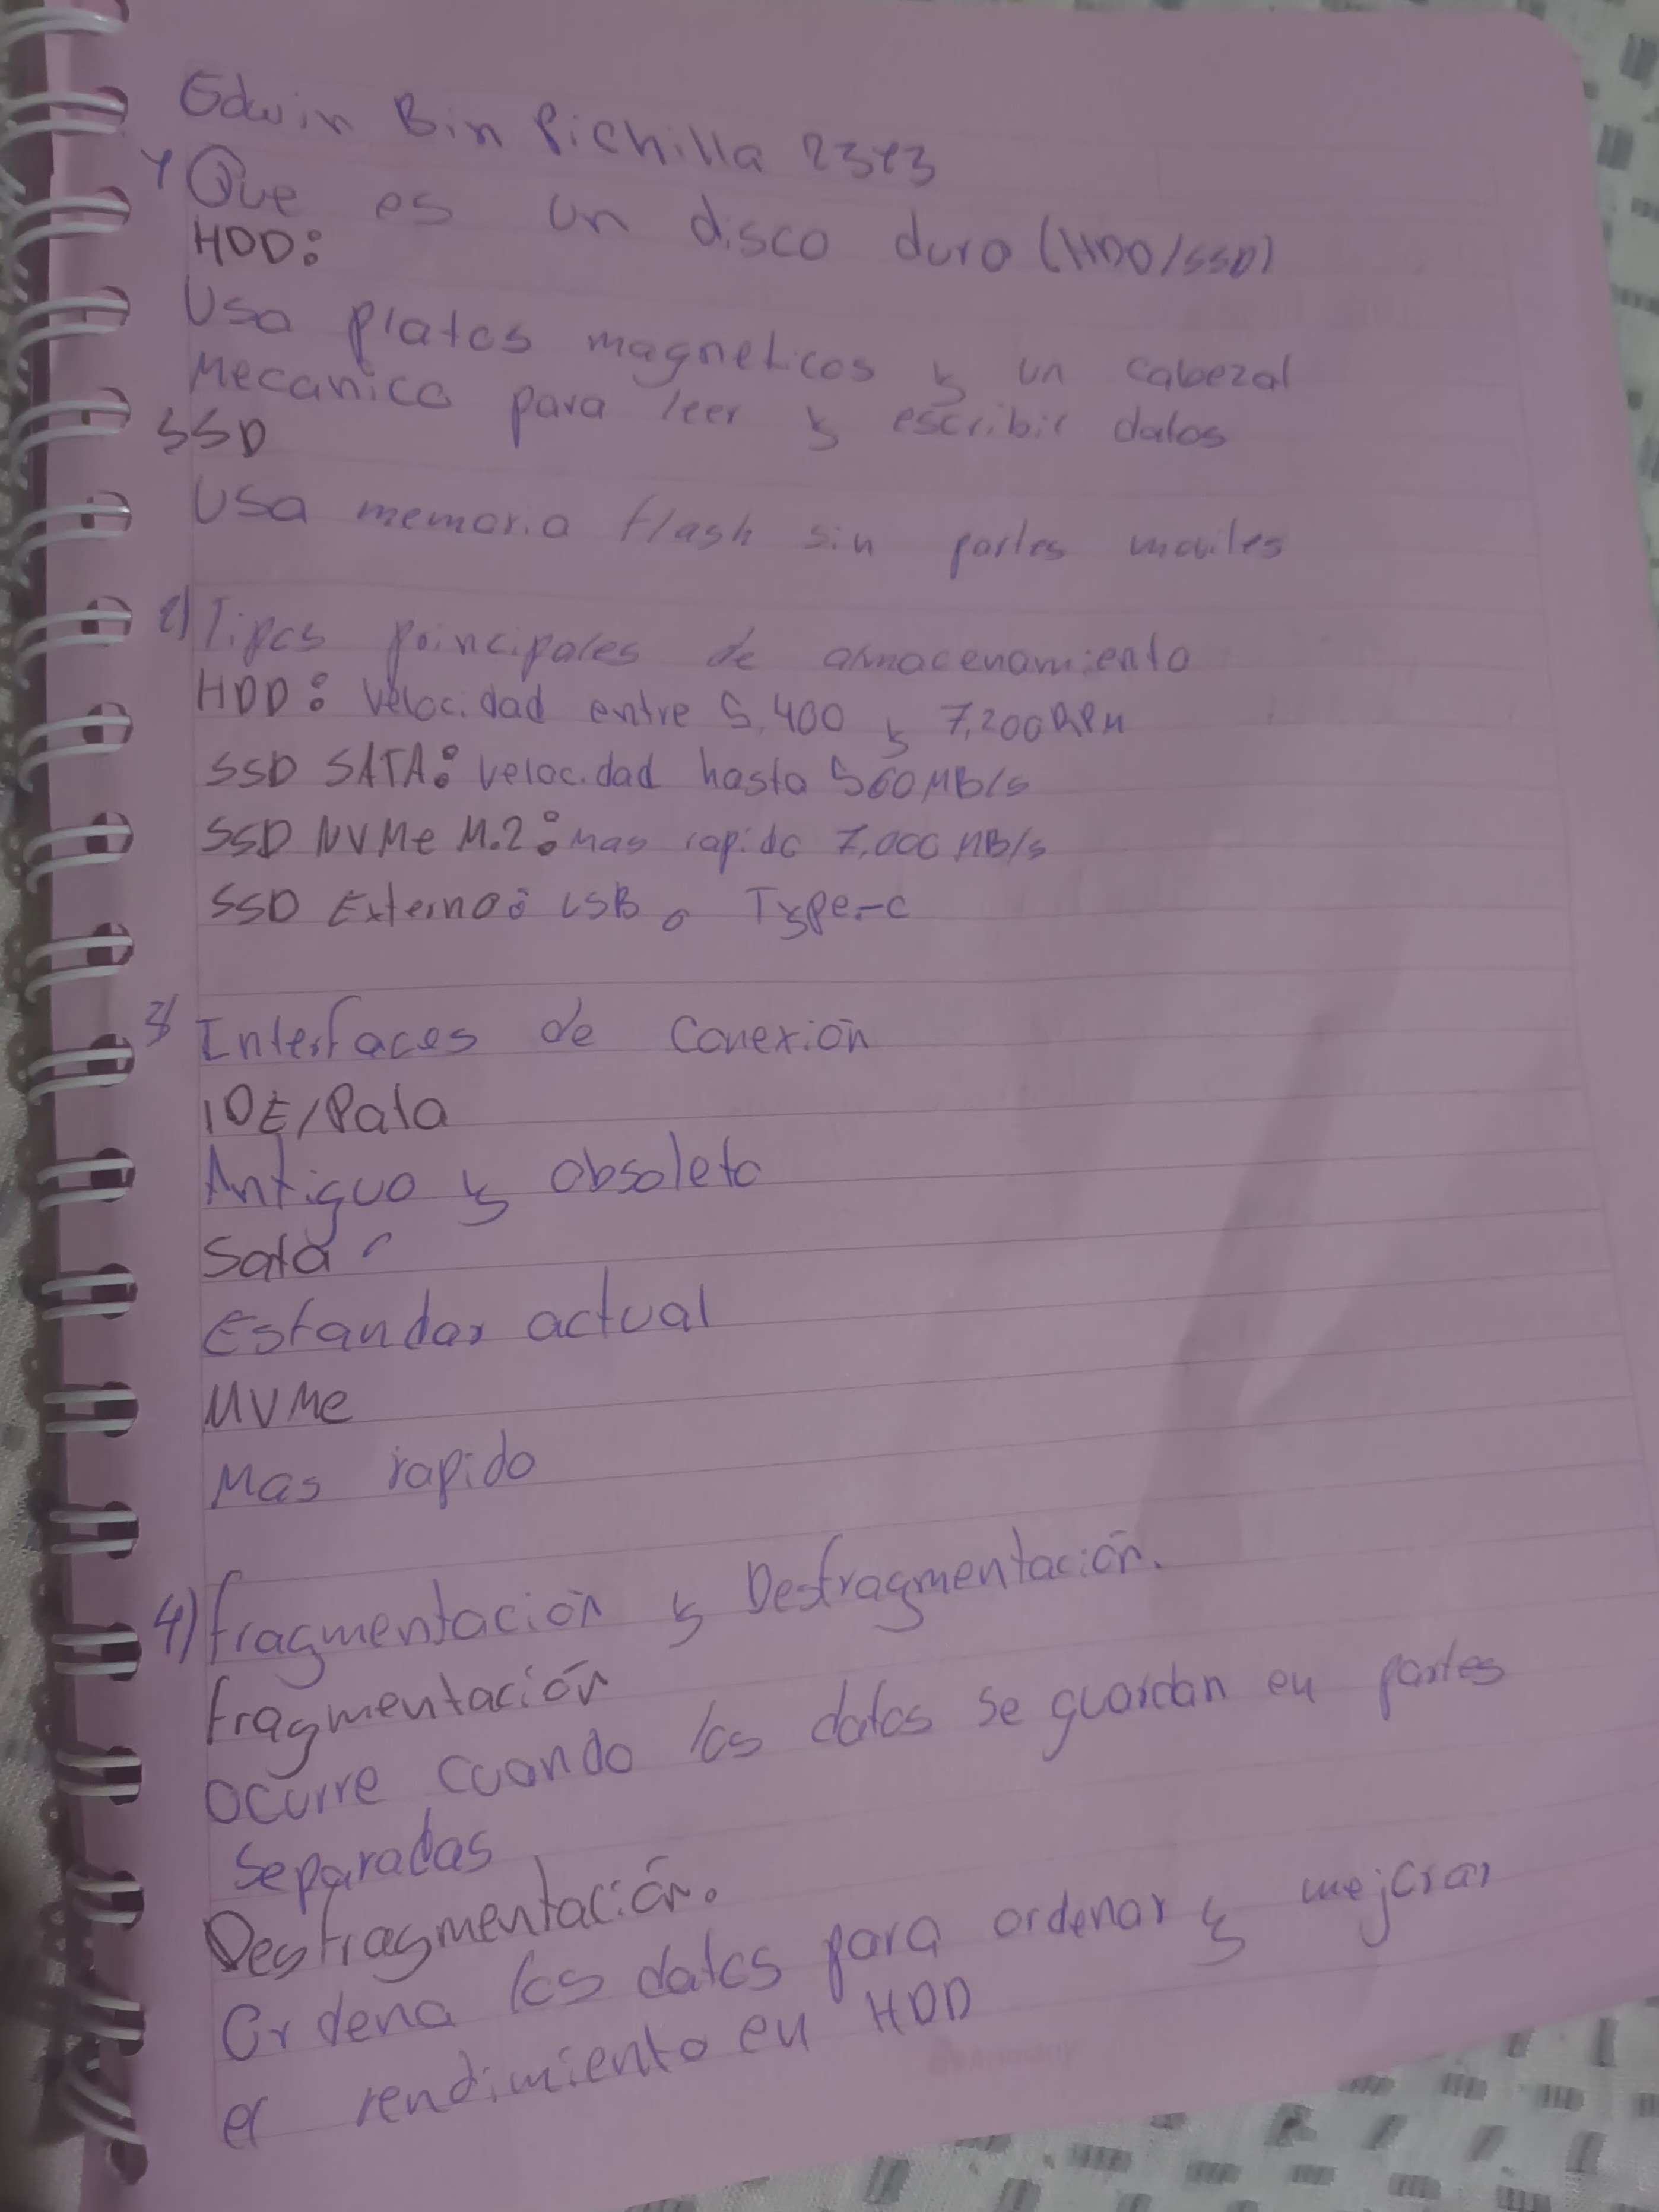 Edwin Bin Pichilla
1) Que es un disco duro (HDD/SSD)
HDD:
Usa platos magneticos y un cabezal
Mecanico para leer y escribir datos
SSD
Usa memoria flash sin partes moviles
2) Tipos principales de almacenamiento
HDD: Velocidad entre 5,400 y 7,200 RPM
SSD SATA: velocidad hasta 560 MB/s
SSD NVMe M.2: Mas rapido 7,000 MB/s
SSD Externo: USB o Type-c
3) Interfaces de Conexión
IDE/Pata
Antiguo y obsoleto
Sata
Estandar actual
NVMe
Mas rapido
4) fragmentación y Desfragmentación.
fragmentación
ocurre cuando los datos se guardan en partes
separadas
Desfragmentación.
Ordena los datos para ordenar y mejorar
el rendimiento en HDD